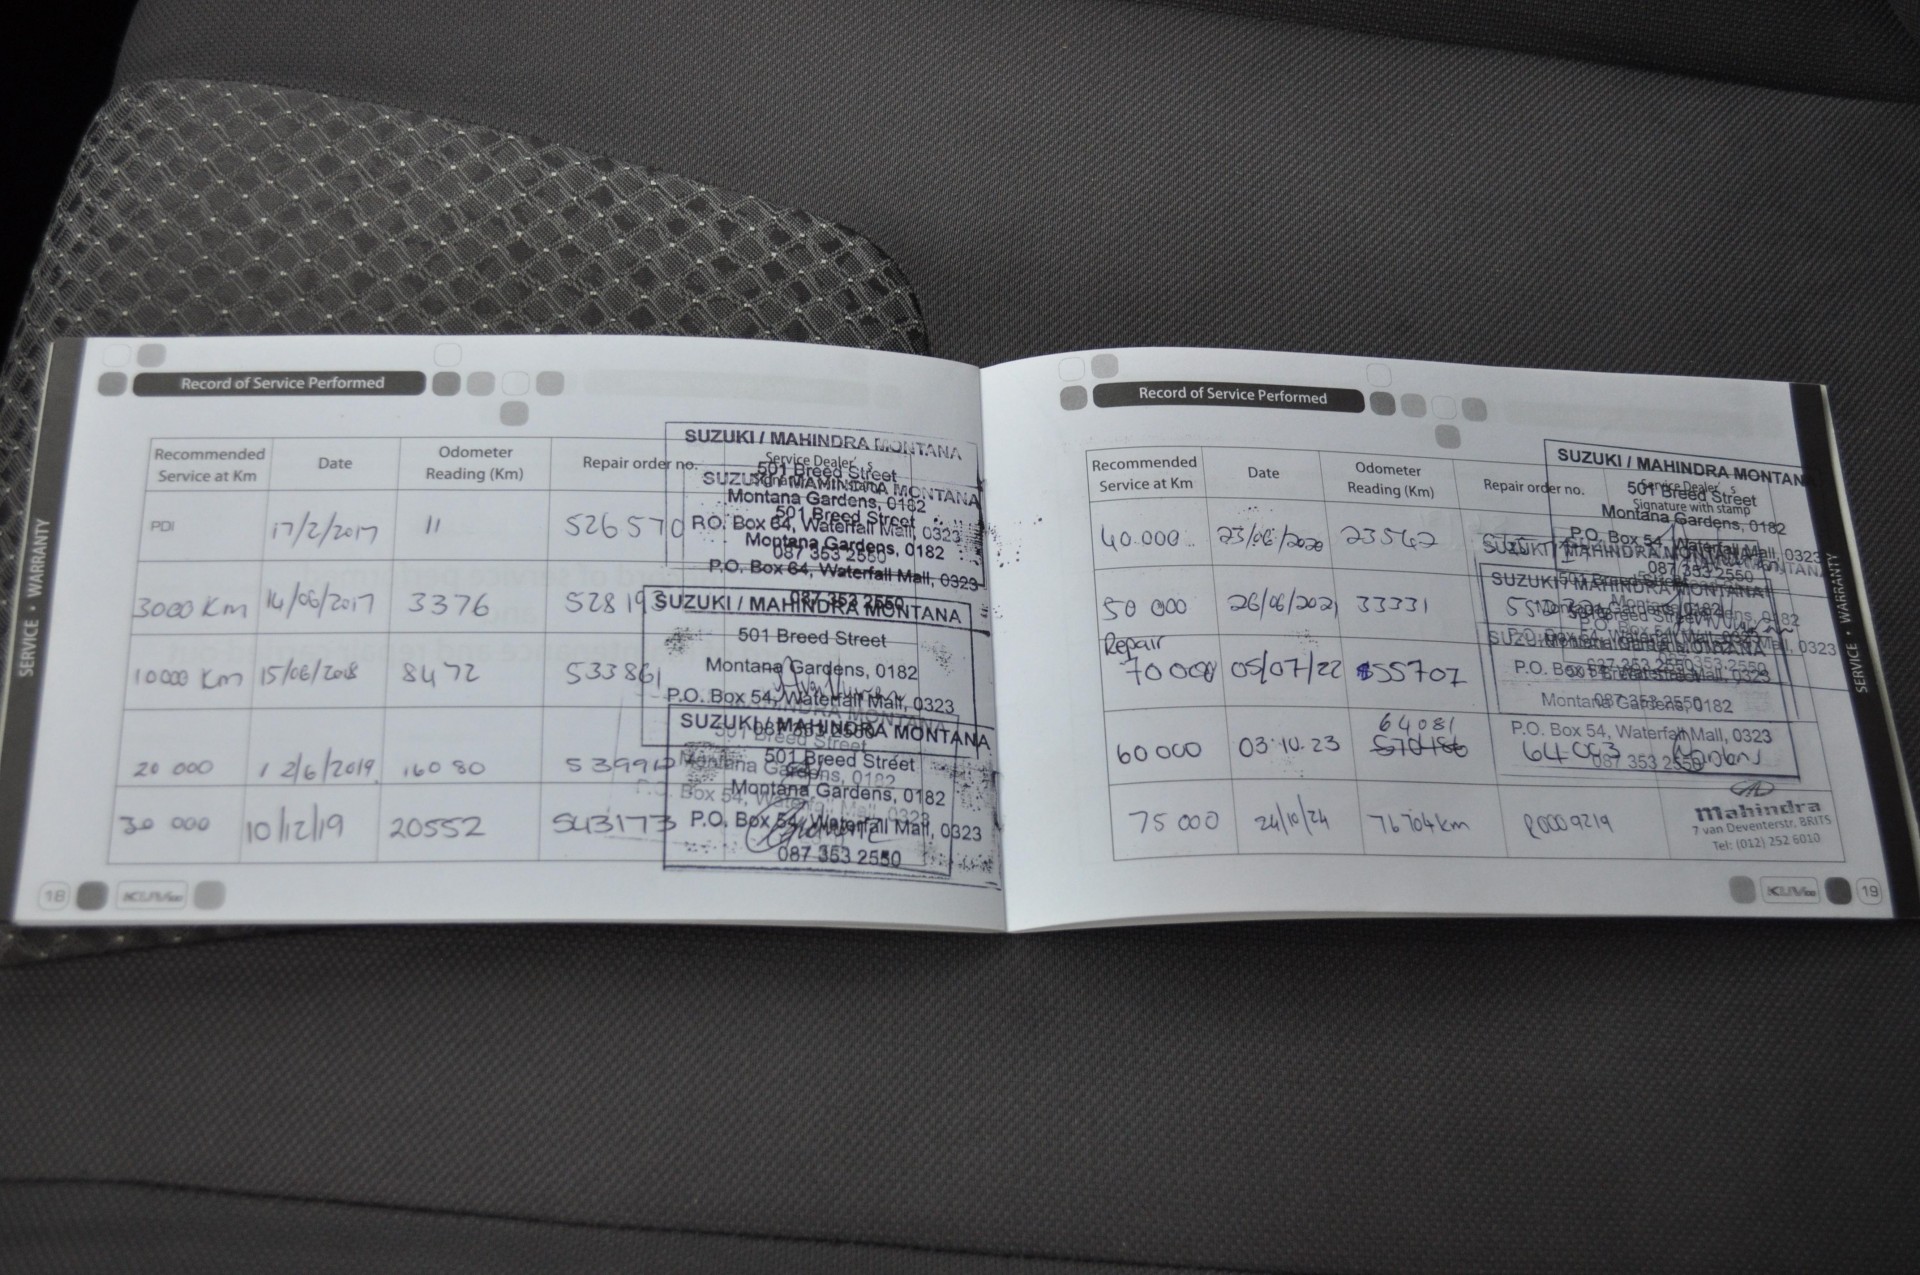 SERVICE • WARRANTY
Record of Service Performed
Recommended Service at Km | Date | Odometer Reading (Km) | Repair order no.
PDI | 17/2/2017 | 11 | 526570
3000 Km | 14/06/2017 | 3376 | 528193
10000 Km | 15/06/2018 | 8472 | 533861
20 000 | 12/6/2019 | 16080
30 000 | 10/12/19 | 20552 | 543173
SUZUKI / MAHINDRA MONTANA
501 Breed Street
SUZUKI / MAHINDRA MONTANA
Montana Gardens, 0182
501 Breed Street
P.O. Box 54, Waterfall Mall, 0323
Montana Gardens, 0182
087 353 2550
P.O. Box 54, Waterfall Mall, 0323
087 353 2550
SUZUKI / MAHINDRA MONTANA
501 Breed Street
Montana Gardens, 0182
P.O. Box 54, Waterfall Mall, 0323
087 353 2550
SUZUKI / MAHINDRA MONTANA
501 Breed Street
Montana Gardens, 0182
P.O. Box 54, Waterfall Mall, 0323
087 353 2550
18
KUV100
Record of Service Performed
Recommended Service at Km | Date | Odometer Reading (Km) | Repair order no. | Service Dealer's Signature with stamp
40 000 | 23/06/2020 | 23542
50 000 | 26/06/2021 | 33331
Repair
70 000 | 05/07/22 | 55707
64081
60 000 | 03.10.23
75 000 | 24/10/24 | 76704km | R0009219
SUZUKI / MAHINDRA MONTANA
501 Breed Street
Montana Gardens, 0182
P.O. Box 54, Waterfall Mall, 0323
087 353 2550
SUZUKI / MAHINDRA MONTANA
Montana Gardens, 0182
P.O. Box 54, Waterfall Mall, 0323
087 353 2550
Mahindra
7 van Deventerstr, BRITS
Tel: (012) 252 6010
KUV100
19
SERVICE • WARRANTY